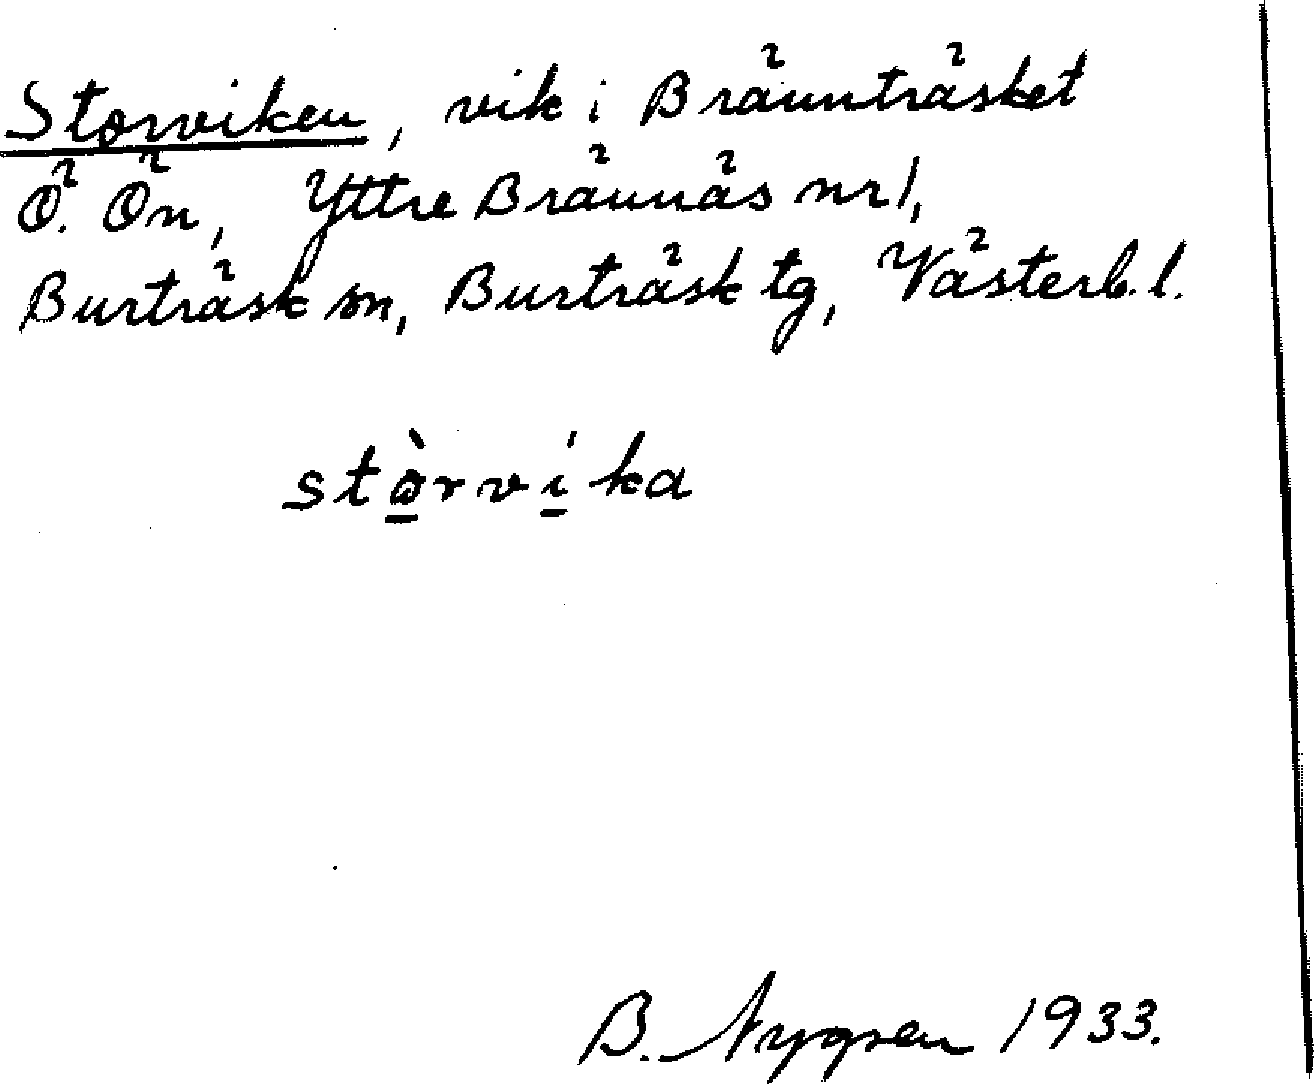 Storviken, vik i Brännträsket
Ö. Ön, Yttre Brännäs nr 1,
Burträsk sn, Burträsk tg, Västerb. l.
stòrvíka
B. Nygren 1933.